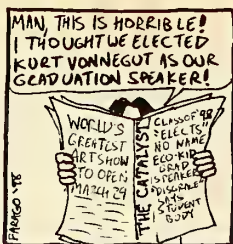 MAN, THIS IS HORRIBLE!
I THOUGHT WE ELECTED
KURT VONNEGUT AS OUR
GRADUATION SPEAKER!
WORLD'S
GREATEST
ART SHOW
TO OPEN
MARCH 29
THE CATALYST
CLASS OF '98
"ELECTS"
NO NAME
ECO-KID
GRAD
SPEAKER
"DISGRACE"
SAYS
STUDENT
BODY
FARAGO '98